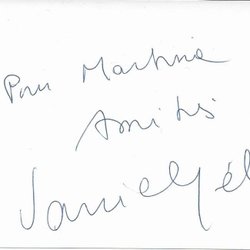 Pour Martine
Amitiés
Daniel Gél